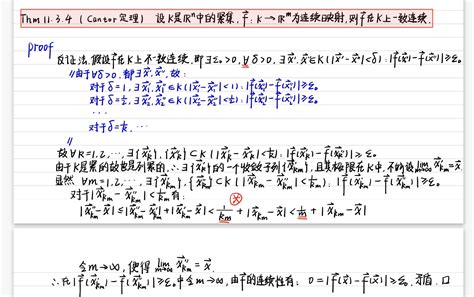 Thm 11.3.4 (Cantor定理) 设K是ℝⁿ中的紧集, f⃗: K→ℝᵐ为连续映射, 则f⃗在K上一致连续.
proof
反证法, 假设f⃗在K上不一致连续. 即∃ε₀>0, ∀δ>0, ∃x⃗', x⃗''∈K(|x⃗'-x⃗''|<δ): |f⃗(x⃗')-f⃗(x⃗'')|≥ε₀.
//由于∀δ>0, 都∃x⃗', x⃗'', 故:
对于δ=1, ∃x⃗₁', x⃗₁''∈K(|x⃗₁'-x⃗₁''|<1): |f⃗(x⃗₁')-f⃗(x⃗₁'')|≥ε₀
对于δ=½, ∃x⃗₂', x⃗₂''∈K(|x⃗₂'-x⃗₂''|<½): |f⃗(x⃗₂')-f⃗(x⃗₂'')|≥ε₀.
...
对于δ=1/k, ...
//
故∀k=1,2,..., ∃{x⃗ₖ'}, {x⃗ₖ''}⊂K(|x⃗ₖ'-x⃗ₖ''|<1/k): |f⃗(x⃗ₖ')-f⃗(x⃗ₖ'')|≥ε₀.
由于K是紧的故也是列紧的, ∴∃{x⃗ₖ'}的一个收敛子列{x⃗ₖₘ'}, 且其极限在K中, 不妨设lim m→∞ x⃗ₖₘ'=x⃗
显然 ∀m=1,2,..., ∃{x⃗ₖₘ'}, {x⃗ₖₘ''}⊂K(|x⃗ₖₘ'-x⃗ₖₘ''|<1/kₘ): |f⃗(x⃗ₖₘ')-f⃗(x⃗ₖₘ'')|≥ε₀.
对于|x⃗ₖₘ'-x⃗ₖₘ''|<1/kₘ有: ⊗
|x⃗ₖₘ''-x⃗|≤|x⃗ₖₘ''-x⃗ₖₘ'|+|x⃗ₖₘ'-x⃗|<1/kₘ+|x⃗ₖₘ'-x⃗|<1/m+|x⃗ₖₘ'-x⃗|
令m→∞, 便得 lim m→∞ x⃗ₖₘ''=x⃗.
∴在|f⃗(x⃗ₖₘ')-f⃗(x⃗ₖₘ'')|≥ε₀中令m→∞, 由f⃗的连续性有: 0=|f⃗(x⃗)-f⃗(x⃗)|≥ε₀. 矛盾. □